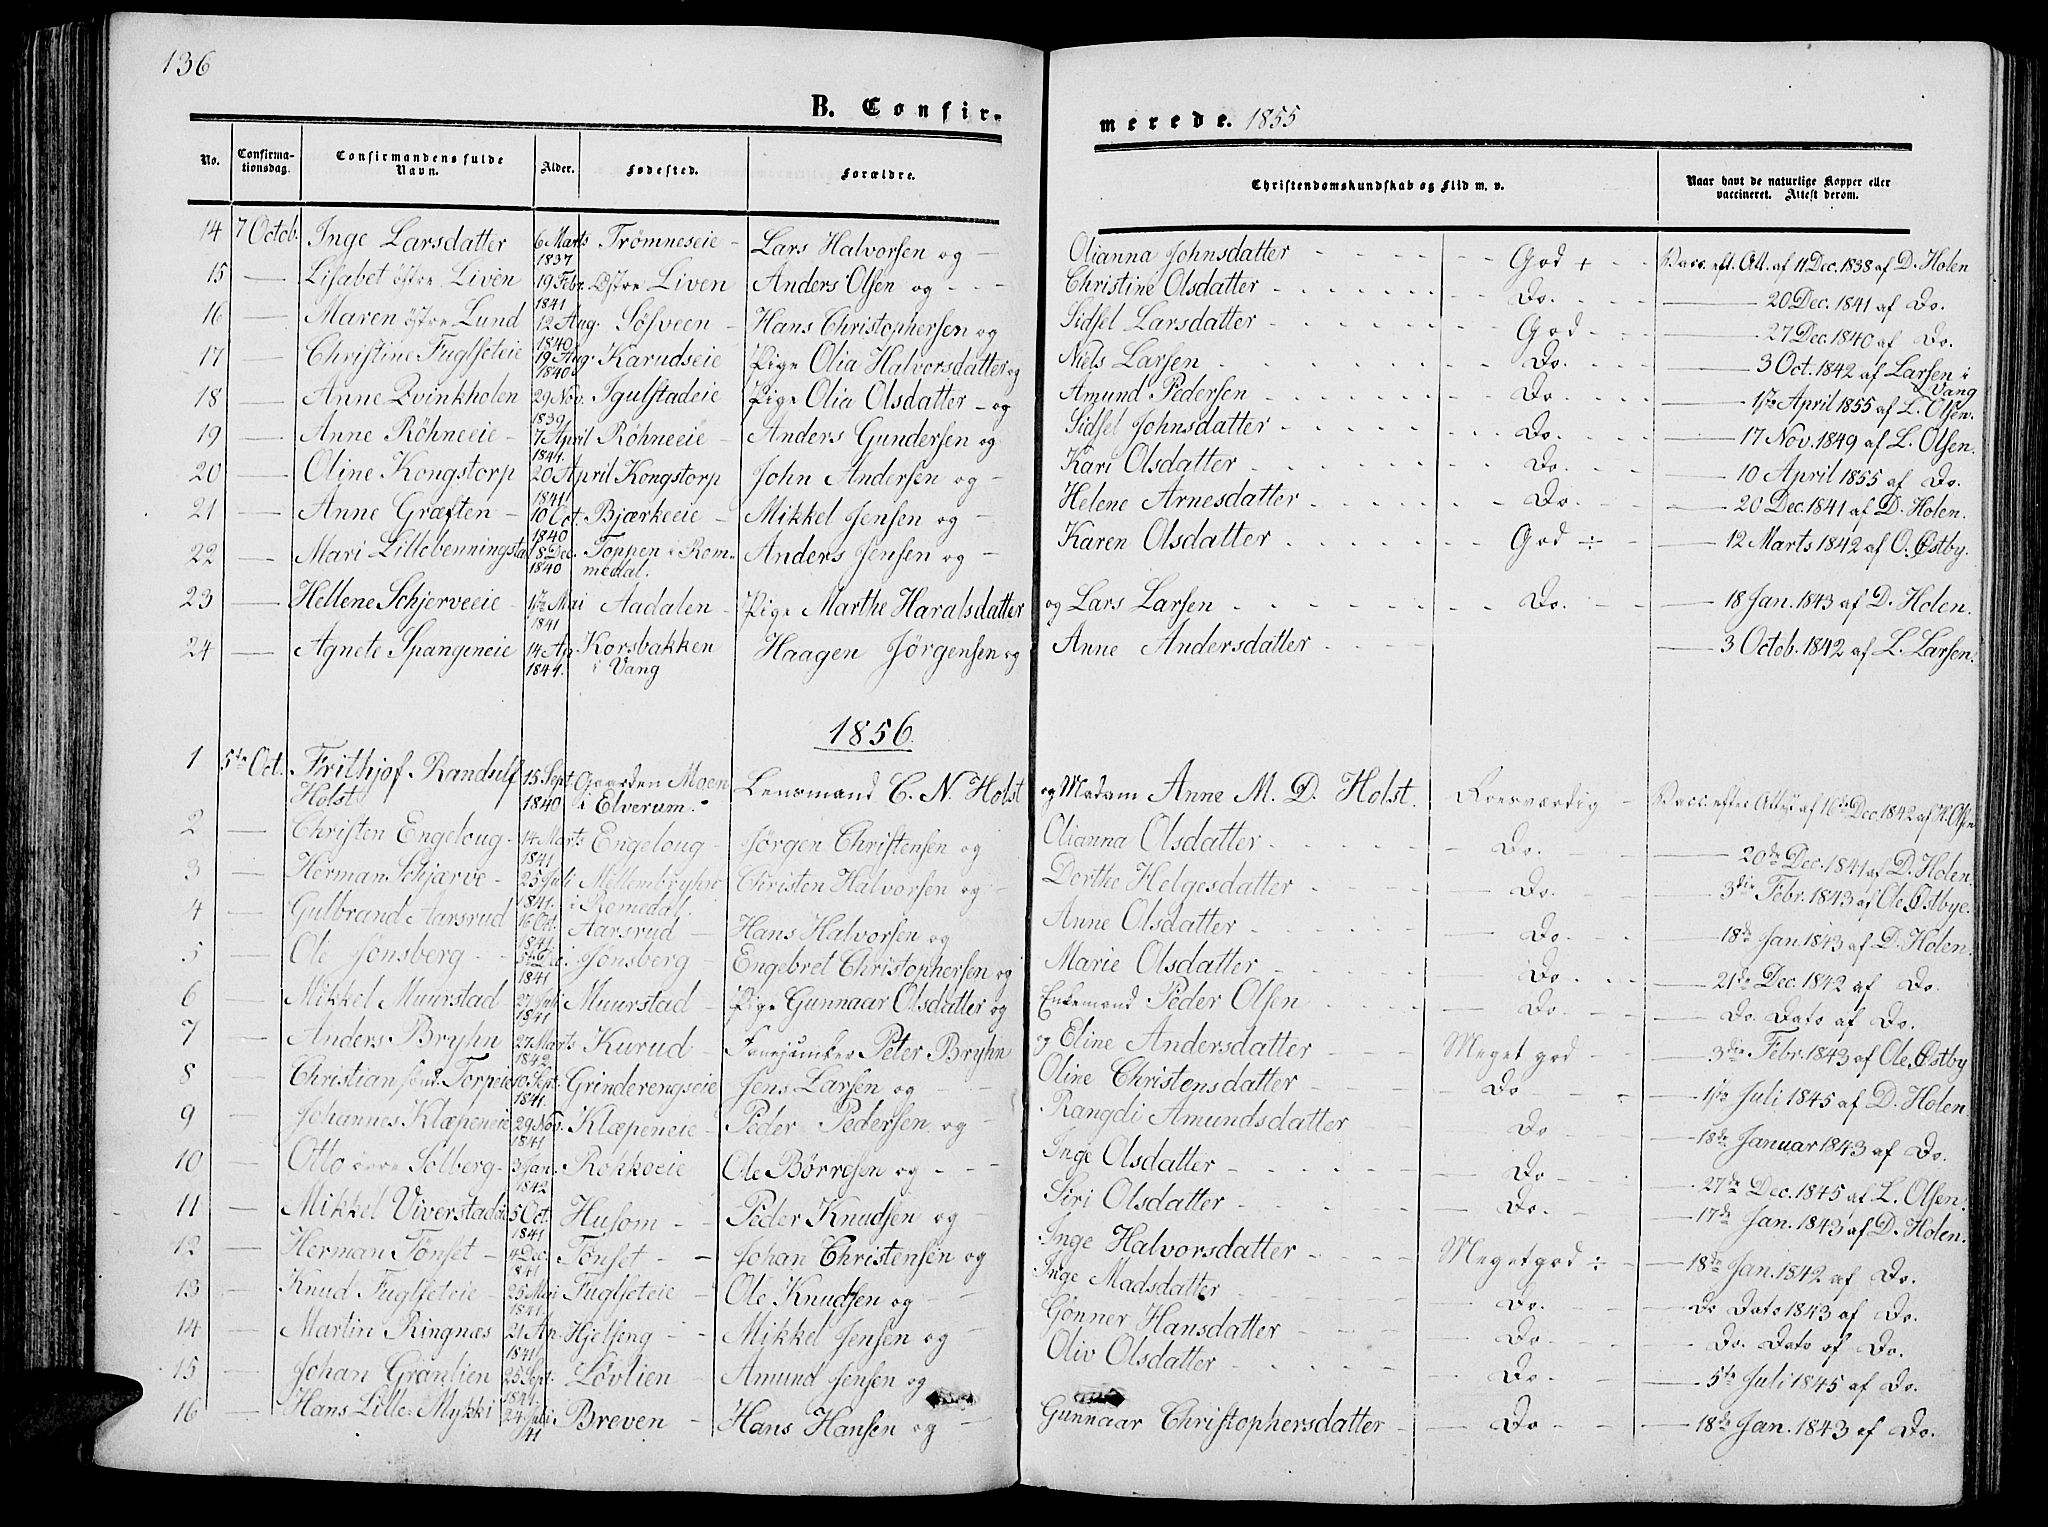 136
B. Confir-
merede. 1855
No. Confirma-tionsdag. Confirmandens fulde Navn. Alder. Fødested. Forældre. Christendomskundskab og Flid m. v. Naar havt de naturlige Kopper eller vaccineret. Attest derom.
14 7 Octob. Inge Larsdatter 6 Marts 1837 Trømneseie - Lars Halvorsen og - Olianna Johnsdatter God + Vacc. eft. Att. af 11 Dec. 1838 af D. Holen
15 — Lisabet östre Liven 19 Febr. 1841 Östre Liven Anders Olsen og Christine Olsdatter Do. — 20 Dec. 1841 af Do.
16 — Maren östre Lund 12 Aug. 1840 Sösveen - Hans Christophersen og Sidsel Larsdatter God — 27 Dec. 1840 af Do.
17 — Christine Fuglseteie 19 Aug. 1840 Karudseie Pige Olia Halvorsdatter og Niels Larsen Do. — 3 Oct. 1842 af Larsen i Vang
18 — Anne Qvinkholen 29 Nov. 1839 Igulstadeie Pige Olia Olsdatter - og Amund Pedersen Do. — 1ste April 1855 af L. Olsen.
19 — Anne Röhneeie - 7 April 1841. Röhneeie - Anders Gundersen og Sidsel Johnsdatter Do. — 17 Nov. 1849 af L. Olsen.
20 — Oline Kongstorp 20 April 1841 Kongstorp John Andersen og - Kari Olsdatter Do. — 10 April 1855 af Do.
21 — Anne Græften - 10 Oct. 1840 Bjærkeeie - Mikkel Jensen og - Helene Arnesdatter Do. — 20 Dec. 1841 af D. Holen.
22 — Mari Lillebenningstad 18 Dec. 1840 Toppen i Rommedal. Anders Jensen og - Karen Olsdatter God ÷ — 12 Marts 1842 af O. Østby.
23 — Hellene Schjerveeie - 1ste Mai 1841 Aadalen - Pige Marthe Haralsdatter og Lars Larsen Do. — 18 Jan. 1843 af D. Holen.
24 — Agnete Spangeneie 14 Ap. 1841. Korsbakken i Vang Haagen Jörgensen og Anne Andersdatter — 3 Octob. 1842 af L. Larsen.
1856.
1 5te Oct. Frithjof Randulf Holst 15 Sept. 1840 Gaarden Moen i Elverum. Lensmand C. N. Holst og Madam Anne M. D. Holst. Roesværdig - Vacc. efter Attest af 16de Dec. 1842 af N. Olsen
2 — Christen Engeloug - 14 Marts 1841 Engeloug - Jörgen Christensen og Olianna Olsdatter Do. — 20de Dec. 1841 af D. Holen.
3 — Herman Schjærve - 25 Juli 1841. Mellembryhn i Romedal. Christen Halvorsen og - Dorthe Helgesdatter Do. — 3die Febr. 1843 af Ole Østbye.
4 — Gulbrand Aarsrud 16 Oct. 1841. Aarsrud - Hans Halvorsen og Anne Olsdatter Do. — 18de Jan. 1843 af D. Holen.
5 — Ole Jönsberg - 1841 Jönsberg - Engebret Christophersen og Marie Olsdatter Do. — 21de Dec. 1842 af Do.
6 — Mikkel Muurstad 27 Juli 1841 Muurstad - Pige Gunnaar Olsdatter og Enkemand Peder Olsen Do. — Do. Dato af Do.
7 — Anders Bryhn 27 Marts 1842. Kurud - Fanejunker Peter Bryhn og Eline Andersdatter Meget god — 3die Febr. 1843 af Ole Østby
8 — Christian sönd. Torpeie 10 Sept. 1841. Grinderengseie Jens Larsen og Oline Christensdatter Do — 1ste Juli 1845 af D. Holen
9 — Johannes Klæpeneie 29 Nov. 1841 Klæpeneie - Peder Pedersen og - Rangdi Amundsdatter Do — 18de Januar 1843 af Do.
10 — Otto övre Solberg - 3 Jan. 1842 Rokkoeie Ole Börresen og Inge Olsdatter Do — 27de Dec. 1845 af L. Olsen.
11 — Mikkel Viverstadöe 5 Oct. 1841 Husom - Peder Knudsen og - Siri Olsdatter Do. — 17de Jan. 1843 af D. Holen.
12 — Herman Tönset - 4 Dec. 1841 Tönset - Johan Christensen og Inge Halvorsdatter Meget god ÷ — 18de Jan. 1842 af Do.
13 — Knud Fuglseteie - 25 Mai 1841. Fuglseteie - Ole Knudsen og - Inge Madsdatter Do. — Do Dato 1843 af Do.
14 — Martin Ringnæs 21 Ap. 1841 Hjelseng - Mikkel Jensen og - Gönner Hansdatter Do — Do. Dato af Do.
15 — Johan Granlien 25 Sept. 1841. Lövlien - Amund Jensen og Oliv Olsdatter Do — 5te Juli 1845 af Do.
16 — Hans Lille-Mykki 24 Juli 41 Breven - Hans Hansen og - Gunnaar Christophersdatter Do — 18de Jan. 1843 af Do.